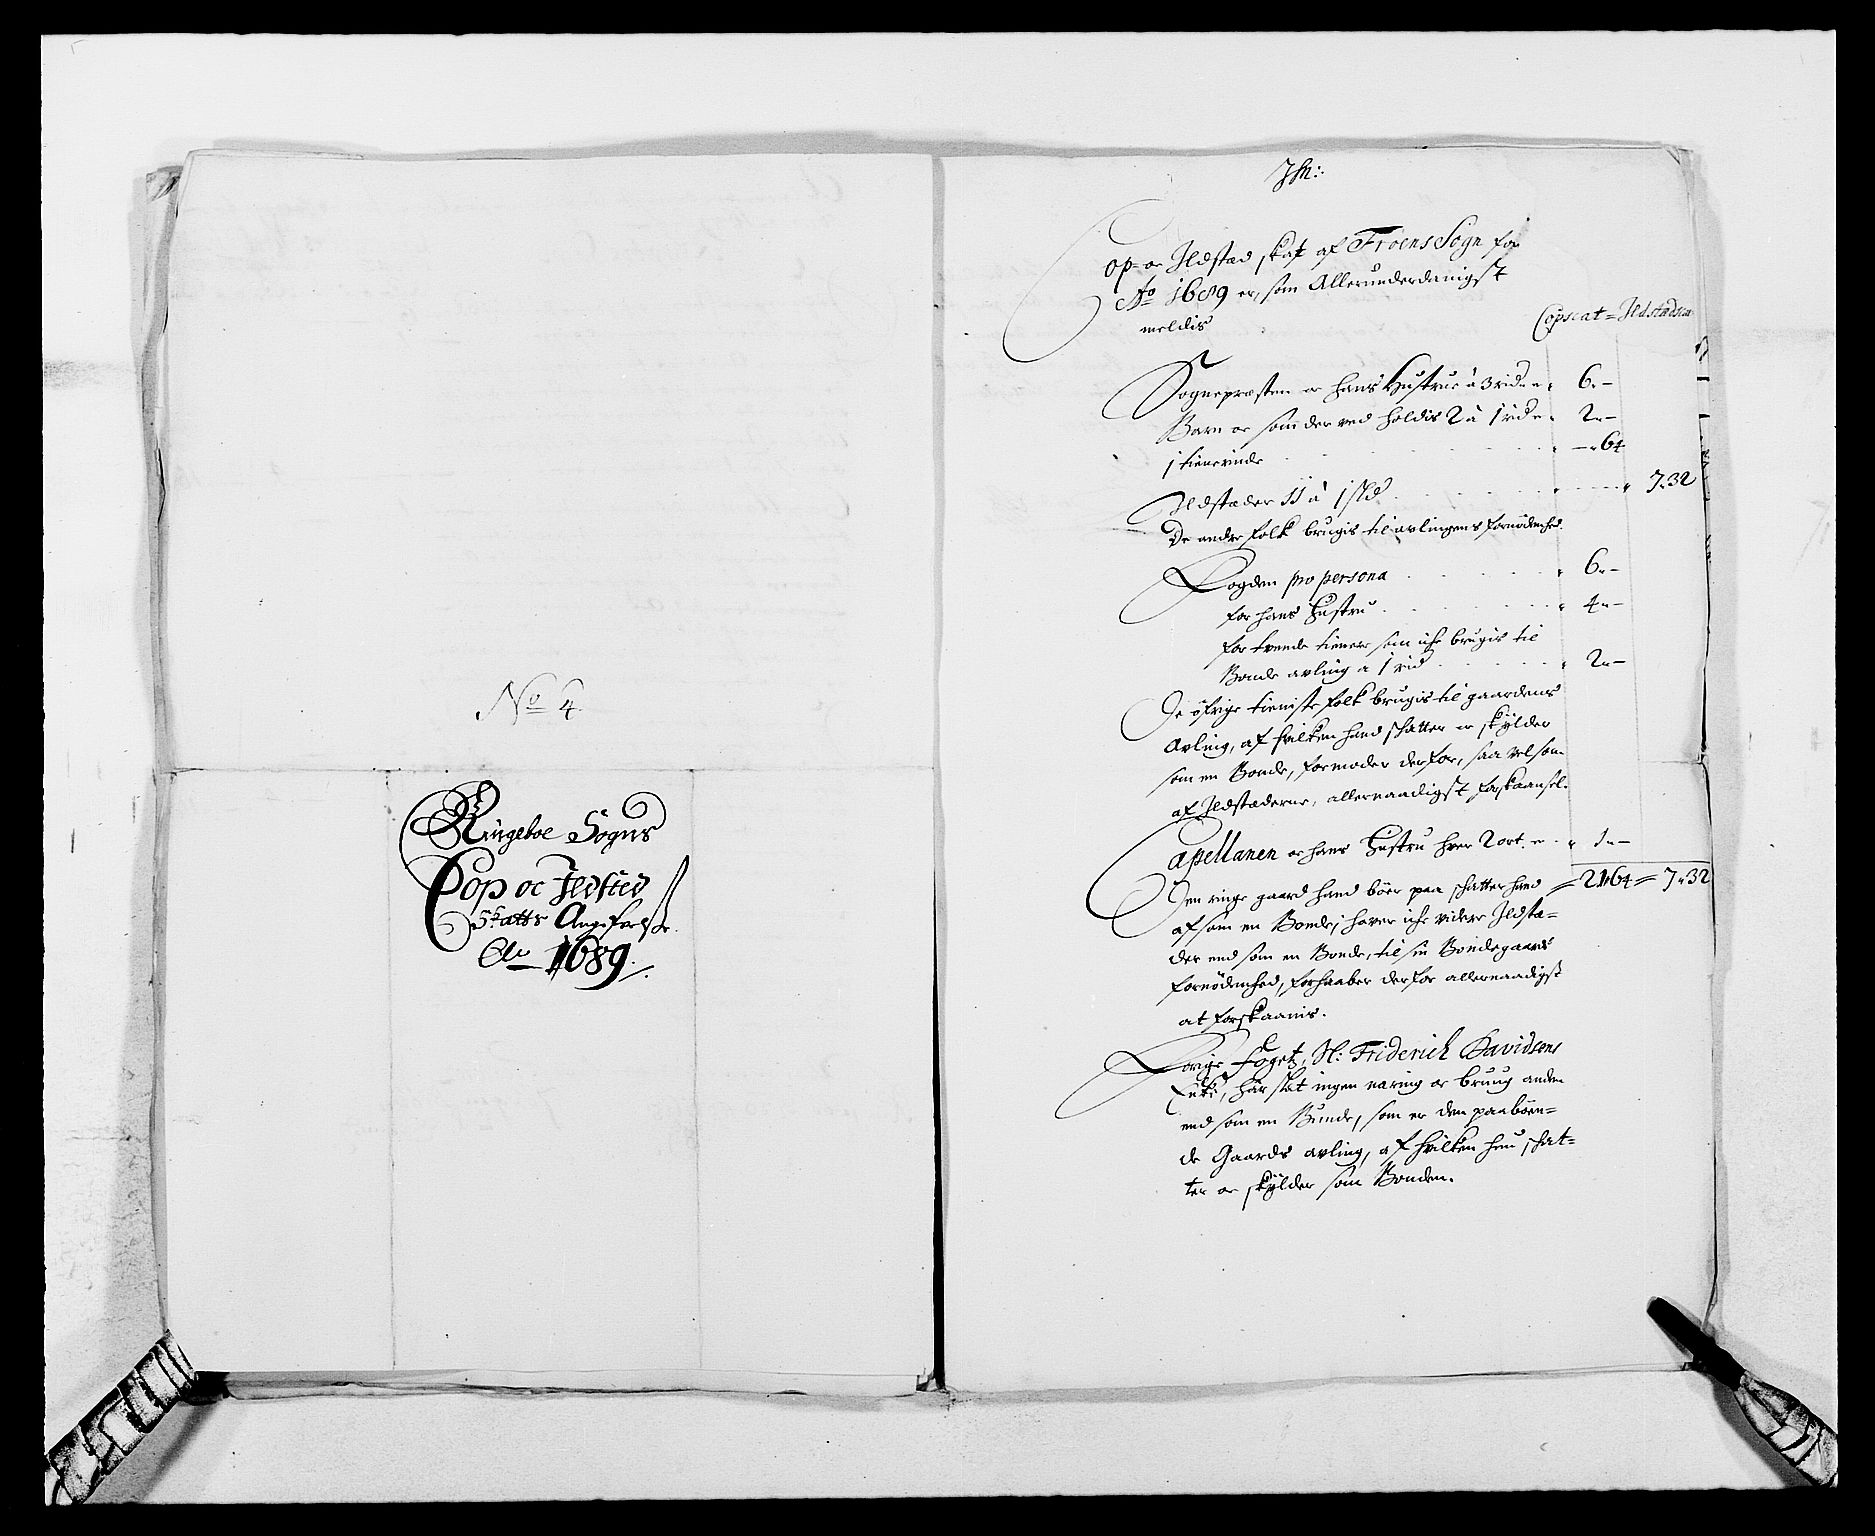 No 4.
Ringeboe Sogns
Cop oc Ildsted
Skatts Angifvelse
Ao 1689.
Jhs:
Cop- oc Ildstad skat af Froens Sogn for
Ao 1689 er, som Allerunderdanigst
meldis
Copscat = Ildstedscat
Sognepræsten oc hans Hustrue à 3 rd 6 „ –
Børn oc som der ved holdis 2 à 1 rd 2 „ –
1 tieneinde – „ 64
Ildstæder 11 à 1 sld 7 „ 32
De andre folk brugis til avlingens fornødenhed.
Fogden pro persona 6 „ –
for hans Hustru 4 „ –
for tvende tienere som iche brugis til
Bonde avling a 1 rd 2 „ –
De öfrige tieniste folk brugis til gaardens
Avling, af hvilken hand skatter oc skylder
som en Bonde, formoder derfor, saa vel som
af Ildstæderne, allernaadigst forskaansel.
Capellanen oc hans Hustru hver 2 ort 1 „ –
Den ringe gaard hand böer paa skatter hand = 21 „ 64 = 7 „ 32
af som en Bonde; haver iche videre Ildstæ=
der end som en Bonde, til sin Bondegaards
fornödenhed, forhaaber derfor allernaadigst
at forskaanis.
Forige fogetz, Sl: Friderich Davidsens
Enke, har slet ingen næring oc bruug anden
end som en Bunde, som er den paaböen=
de Gaards avling, af hvilken hun skat=
ter oc skylder som Bonden.